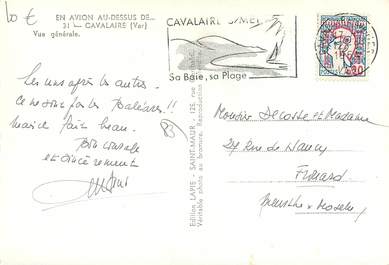 10 €
EN AVION AU-DESSUS DE...
31 — CAVALAIRE (Var)
Vue générale.
CAVALAIRE S/MER
Sa Baie, sa Plage
Les uns après les autres.
Ce ne sont pas les Baléares!!
mais il fait beau.
Bon courage
et sincèrement
83
Edition LAPIE - SAINT-MAUR - 125, rue
Véritable photo au bromure. Reproduction
0,20
Monsieur Decoste et Madame
27 Rue de Nancy
Frouard
Meurthe & Moselle